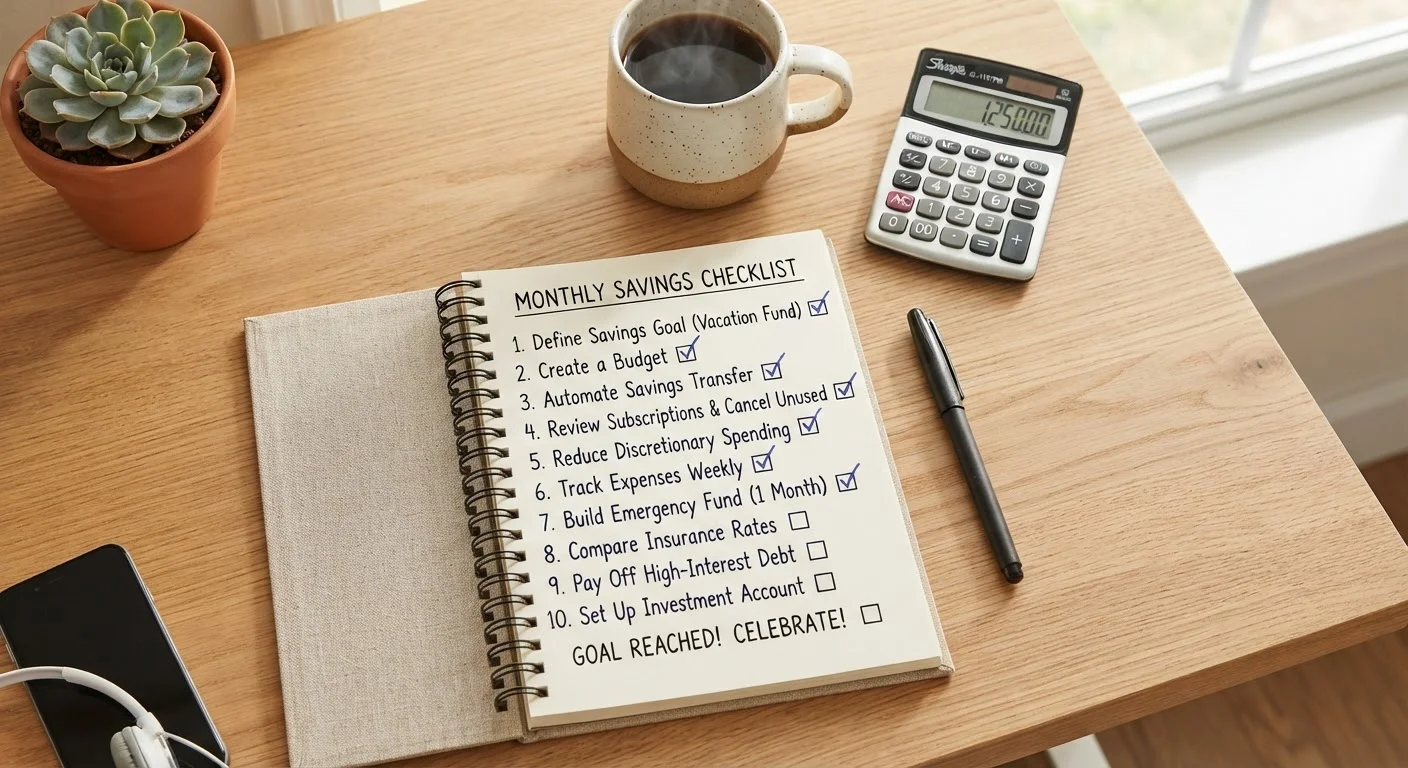 MONTHLY SAVINGS CHECKLIST
1. Define Savings Goal (Vacation Fund) ☑
2. Create a Budget ☑
3. Automate Savings Transfer ☑
4. Review Subscriptions & Cancel Unused ☑
5. Reduce Discretionary Spending ☑
6. Track Expenses Weekly ☑
7. Build Emergency Fund (1 Month) ☑
8. Compare Insurance Rates ☐
9. Pay Off High-Interest Debt ☐
10. Set Up Investment Account ☐
GOAL REACHED! CELEBRATE! ☐
1,250.00
7 8 9 ×
4 5 6 −
1 2 3
0 00 . = +